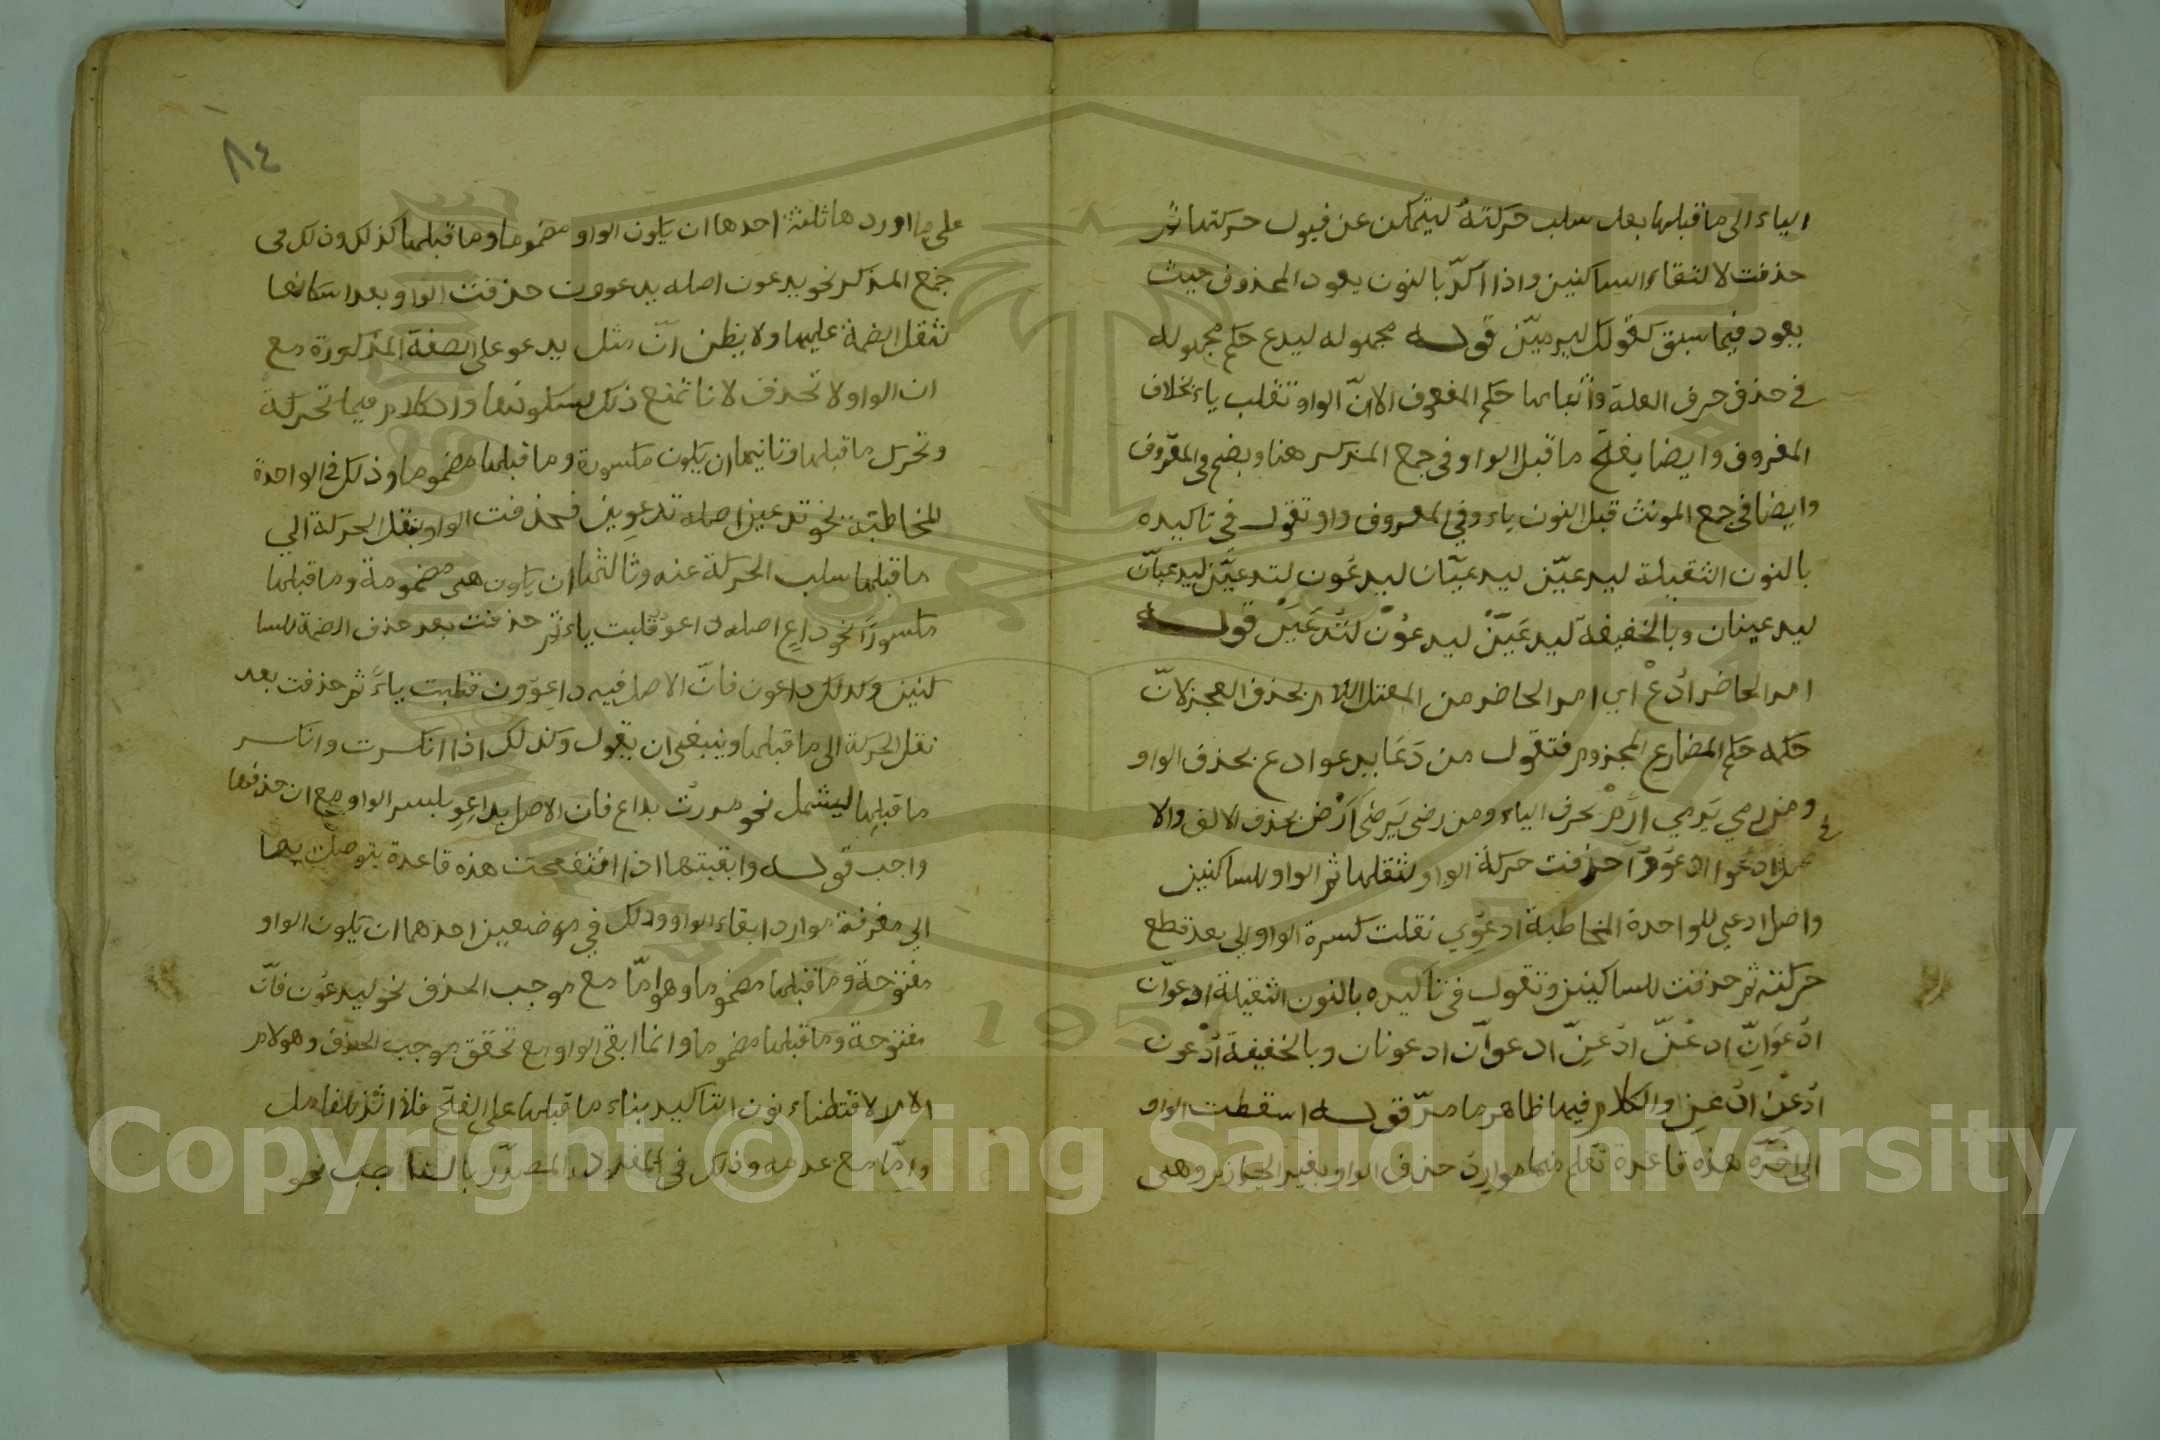 الياء الى ما قبلها بعد سلب حركته ليتمكن عن قبول حركتها ثم
حذفت لالتقاء الساكنين واذا اكدّ بالنون يعود المحذوف حيث
يعود فيما سبق كقولك ليرمينّ قوله مجهوله ليدع حكم مجهوله
في حذف حرف العلة واثباتها حكم المعروف الا انّ الواو تقلب ياء بخلاف
المعروف وايضا يفتح ما قبل الواو في جمع المذكر هنا ويضم في المعروف
وايضا في جمع المونث قبل النون ياء وفي المعروف واو تقول في تاكيده
بالنون الثقيلة ليدعينّ ليدعيانّ ليدعون لتدعينّ لتدعيانّ
ليدعينان وبالخفيفة ليدعين ليدعون لتدعين قوله
امر الحاضر ادع اي امر الحاضر من المعتل اللام بحذف العجز لانّ
حكمه حكم المضارع المجزوم فتقول من دعا يدعو ادع بحذف الواو
ومن رمي يرمي ارم بحذف الياء ومن رضى يرضى ارض بحذف الالف والا
صل ادعوا ادعووا حذفت حركة الواو لثقلها ثم الواو للساكنين
واصل ادعي للواحدة المخاطبة ادعوي نقلت كسرة الواو الى بعد قطع
حركته ثم حذفت للساكنين وتقول في تاكيده بالنون الثقيلة ادعوانّ
ادعوانّ ادعنّ ادعنّ ادعوانّ ادعونان وبالخفيفة ادعون
ادعن ادعن والكلام فيها ظاهر مما مرّ قوله اسقطت الواو
الى اخره هذه قاعدة تعلم منها موارد حذف الواو بغير الجازم وهي
٨٤
على ما اوردها ثلثة احدها ان يكون الواو مضموما وما قبلها كذلك وذلك في
جمع المذكر نحو يدعون اصله يدعوون حذفت الواو بعد اسكانها
لثقل الضمة عليها ولا يظن انّ مثل يدعو على الصفة المذكورة مع
ان الواو لا تحذف لانا نمنع ذلك لسكونها والكلام فيما تحركه
وتحرك ما قبلها وثانيها ان يكون مكسورة وما قبلها مضموما وذلك في الواحدة
المخاطبة نحو تدعين اصله تدعوين فحذفت الواو بنقل الحركة الي
ما قبلها سلب الحركة عنه وثالثها ان يكون هي مضمومة وما قبلها
مكسورا نحو داع اصله داعو قلبت ياء ثم حذفت بعد حذف الضمة للسا
كنين وكذلك داعون فانّ الاصل فيه داعوون قلبت ياء ثم حذفت بعد
نقل الحركة الى ما قبلها وينبغي ان يقول وكذلك اذا انكسرت وانكسر
ما قبلها ليشمل نحو مررت بداع فان الاصل بداعو بكسر الواو مع ان حذفها
واجب قوله وابقيتها اذا انفتحت هذه قاعدة يتوصل بها
الى معرفة موارد ابقاء الواو وذلك في موضعين احدهما ان يكون الواو
مفتوحة وما قبلها مضموما وهو امّا مع موجب الحذف نحو ليدعون فانّ
مفتوحة وما قبلها مضموما وانما ابقى الواو مع تحقق موجب الحذف وهو لام
الامر لاقتضاء نون التاكيد بناء ما قبلها على الفتح
وامّا مع عدمه وذلك في المفرد المصدّر بالناصب نحو
Copyright © King Saud University
1957